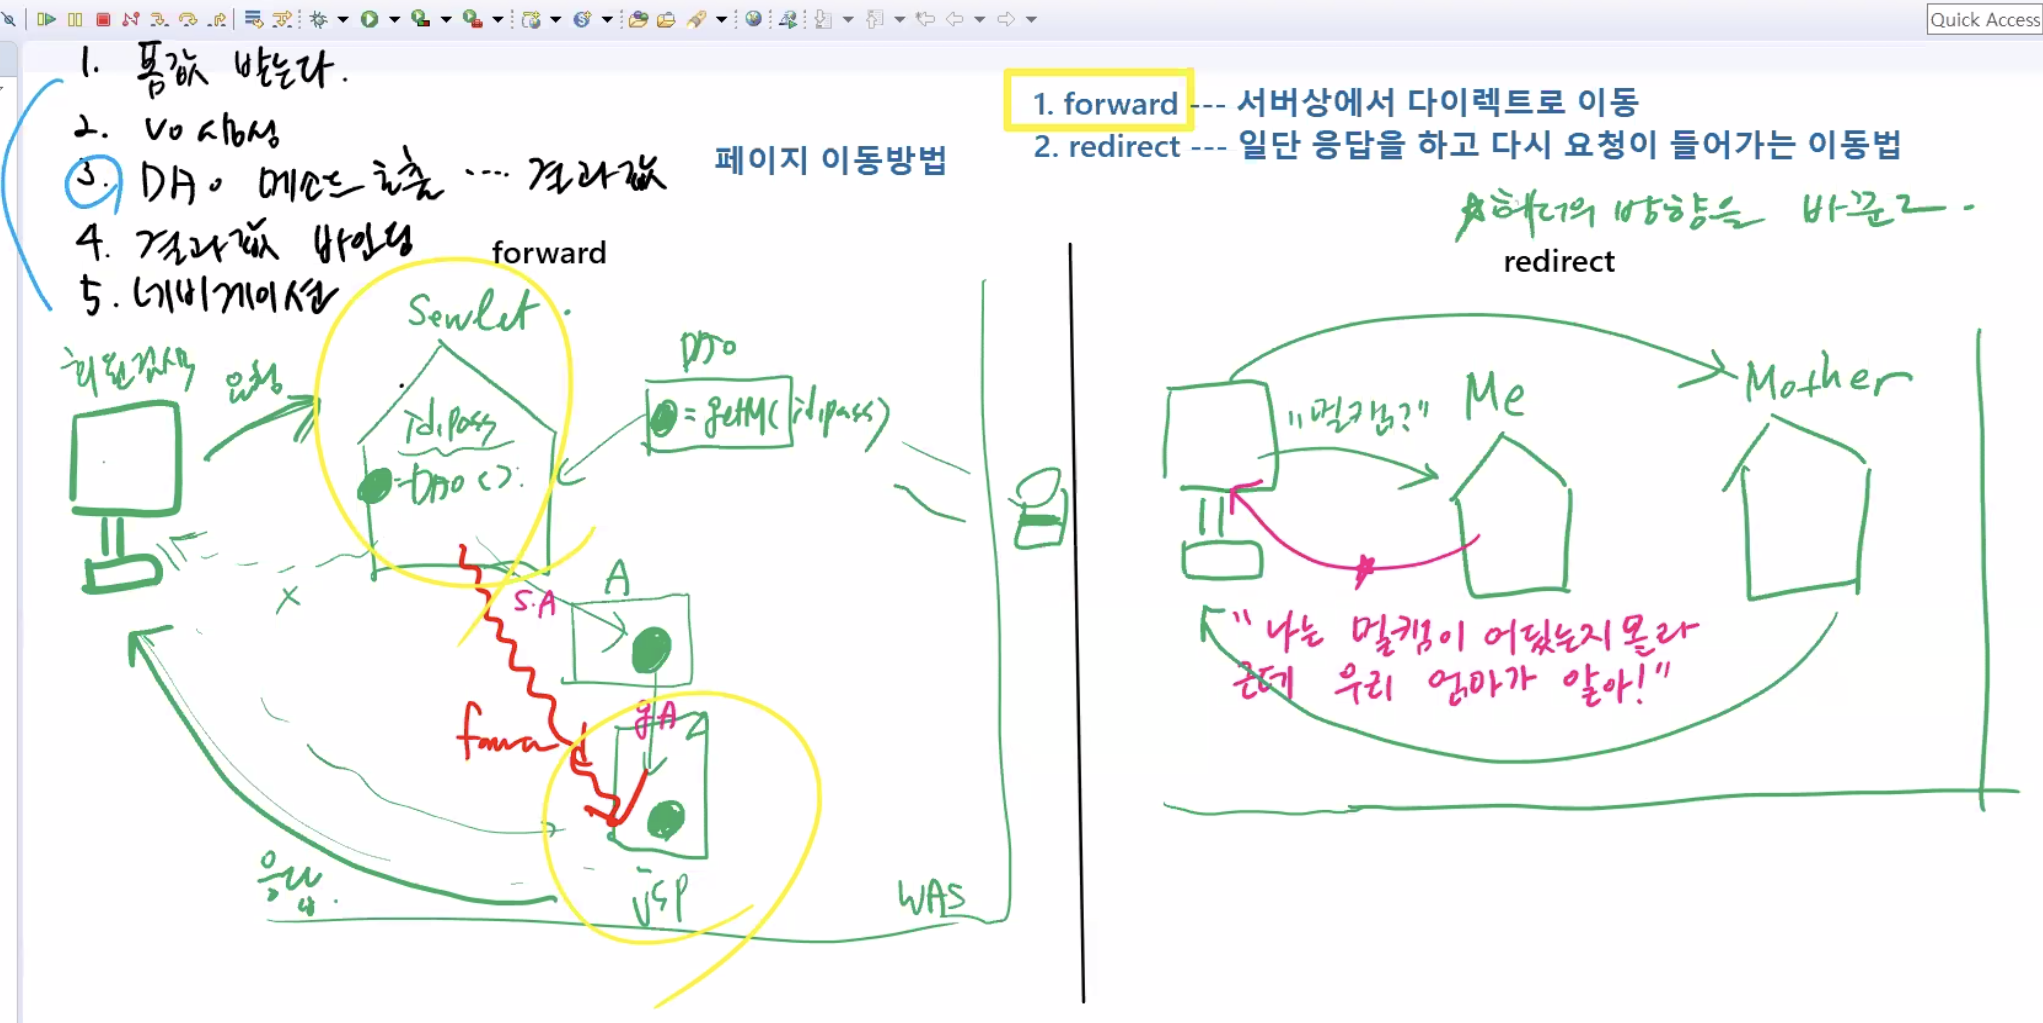 Quick Access
1. 폼값 받는다.
2. VO 생성
3. DAO 메소드 호출 ... 결과값
4. 결과값 바인딩
5. 네비게이션
페이지 이동방법
1. forward --- 서버상에서 다이렉트로 이동
2. redirect --- 일단 응답을 하고 다시 요청이 들어가는 이동법
헤더의 방향을 바꾼고.
forward
Servlet.
회원검색
요청
id,pass
=DAO();
DAO
=getM(id,pass)
X
S.A
A
gA
forward
응답.
JSP
WAS
redirect
"멀캠?"
Me
Mother
"나는 멀캠이 어딨는지 몰라
근데 우리 엄마가 알아!"